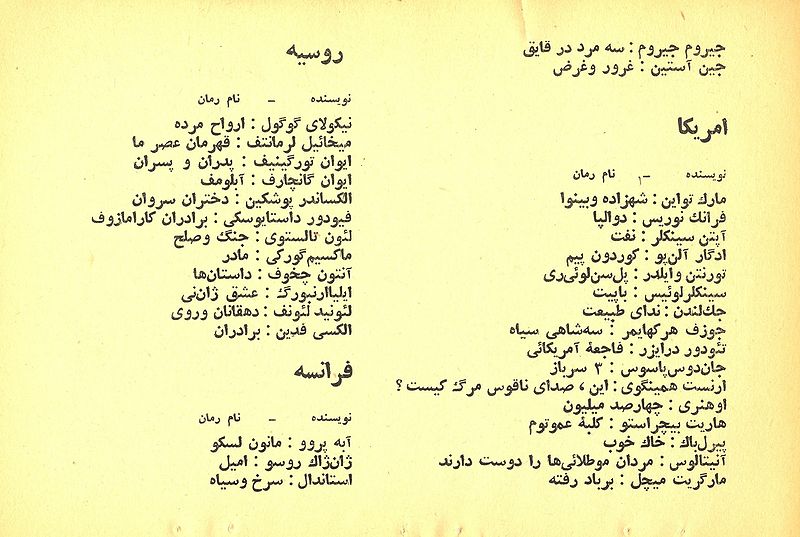 جیروم جیروم : سه مرد در قایق
جین آستین : غرور وغرض
امریکا
نویسنده - نام رمان
مارك تواین : شهزاده وبینوا
فرانك نوریس : دوالپا
آپتن سینکلر : نفت
ادگار آلن‌پو : گوردون پیم
تورنتن وایلدر : پل‌سن‌لوئی‌ری
سینکلرلوئیس : بابیت
جك‌لندن : ندای طبیعت
جوزف هرگهایمر : سه‌شاهی سیاه
تئودور درایزر : فاجعهٔ آمریکائی
جان‌دوس‌پاسوس : ۳ سرباز
ارنست همینگوی : این ، صدای ناقوس مرگ کیست ؟
اوهنری : چهارصد میلیون
هاریت بیچراستو : کلبهٔ عموتوم
پیرل‌باك : خاك خوب
آنیتالوس : مردان موطلائی‌ها را دوست دارند
مارگریت میچل : برباد رفته
روسیه
نویسنده - نام رمان
نیکولای گوگول : ارواح مرده
میخائیل لرمانتف : قهرمان عصر ما
ایوان تورگینیف : پدران و پسران
ایوان گانچارف : آبلومف
الکساندر پوشکین : دختران سروان
فیودور داستایوسکی : برادران کارامازوف
لئون تالستوی : جنگ وصلح
ماکسیم‌گورکی : مادر
آنتون چخوف : داستان‌ها
ایلیاارنبورگ : عشق ژان‌نی
لئونید لئونف : دهقانان وروی
الکسی فدین : برادران
فرانسه
نویسنده - نام رمان
آبه پروو : مانون لسکو
ژان‌ژاك روسو : امیل
استاندال : سرخ وسیاه